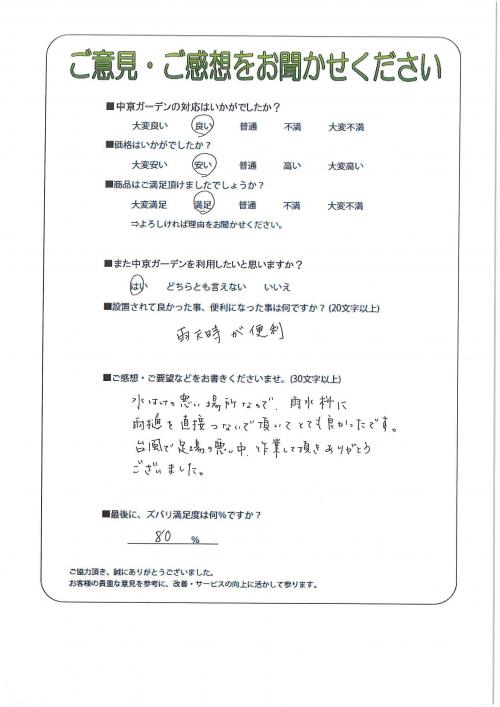 ご意見・ご感想をお聞かせください
■中京ガーデンの対応はいかがでしたか？
大変良い 良い 普通 不満 大変不満
■価格はいかがでしたか？
大変安い 安い 普通 高い 大変高い
■商品はご満足頂けましたでしょうか？
大変満足 満足 普通 不満 大変不満
⇒よろしければ理由をお聞かせください。
■また中京ガーデンを利用したいと思いますか？
はい どちらとも言えない いいえ
■設置されて良かった事、便利になった事は何ですか？(20文字以上)
雨天時が便利
■ご感想・ご要望などをお書きくださいませ。(30文字以上)
水はけの悪い場所なので、雨水桝に
雨樋を直接つないで頂いてとても良かったです。
台風で足場の悪い中、作業して頂きありがとう
ございました。
■最後に、ズバリ満足度は何％ですか？
80 %
ご協力頂き、誠にありがとうございました。
お客様の貴重な意見を参考に、改善・サービスの向上に活かして参ります。